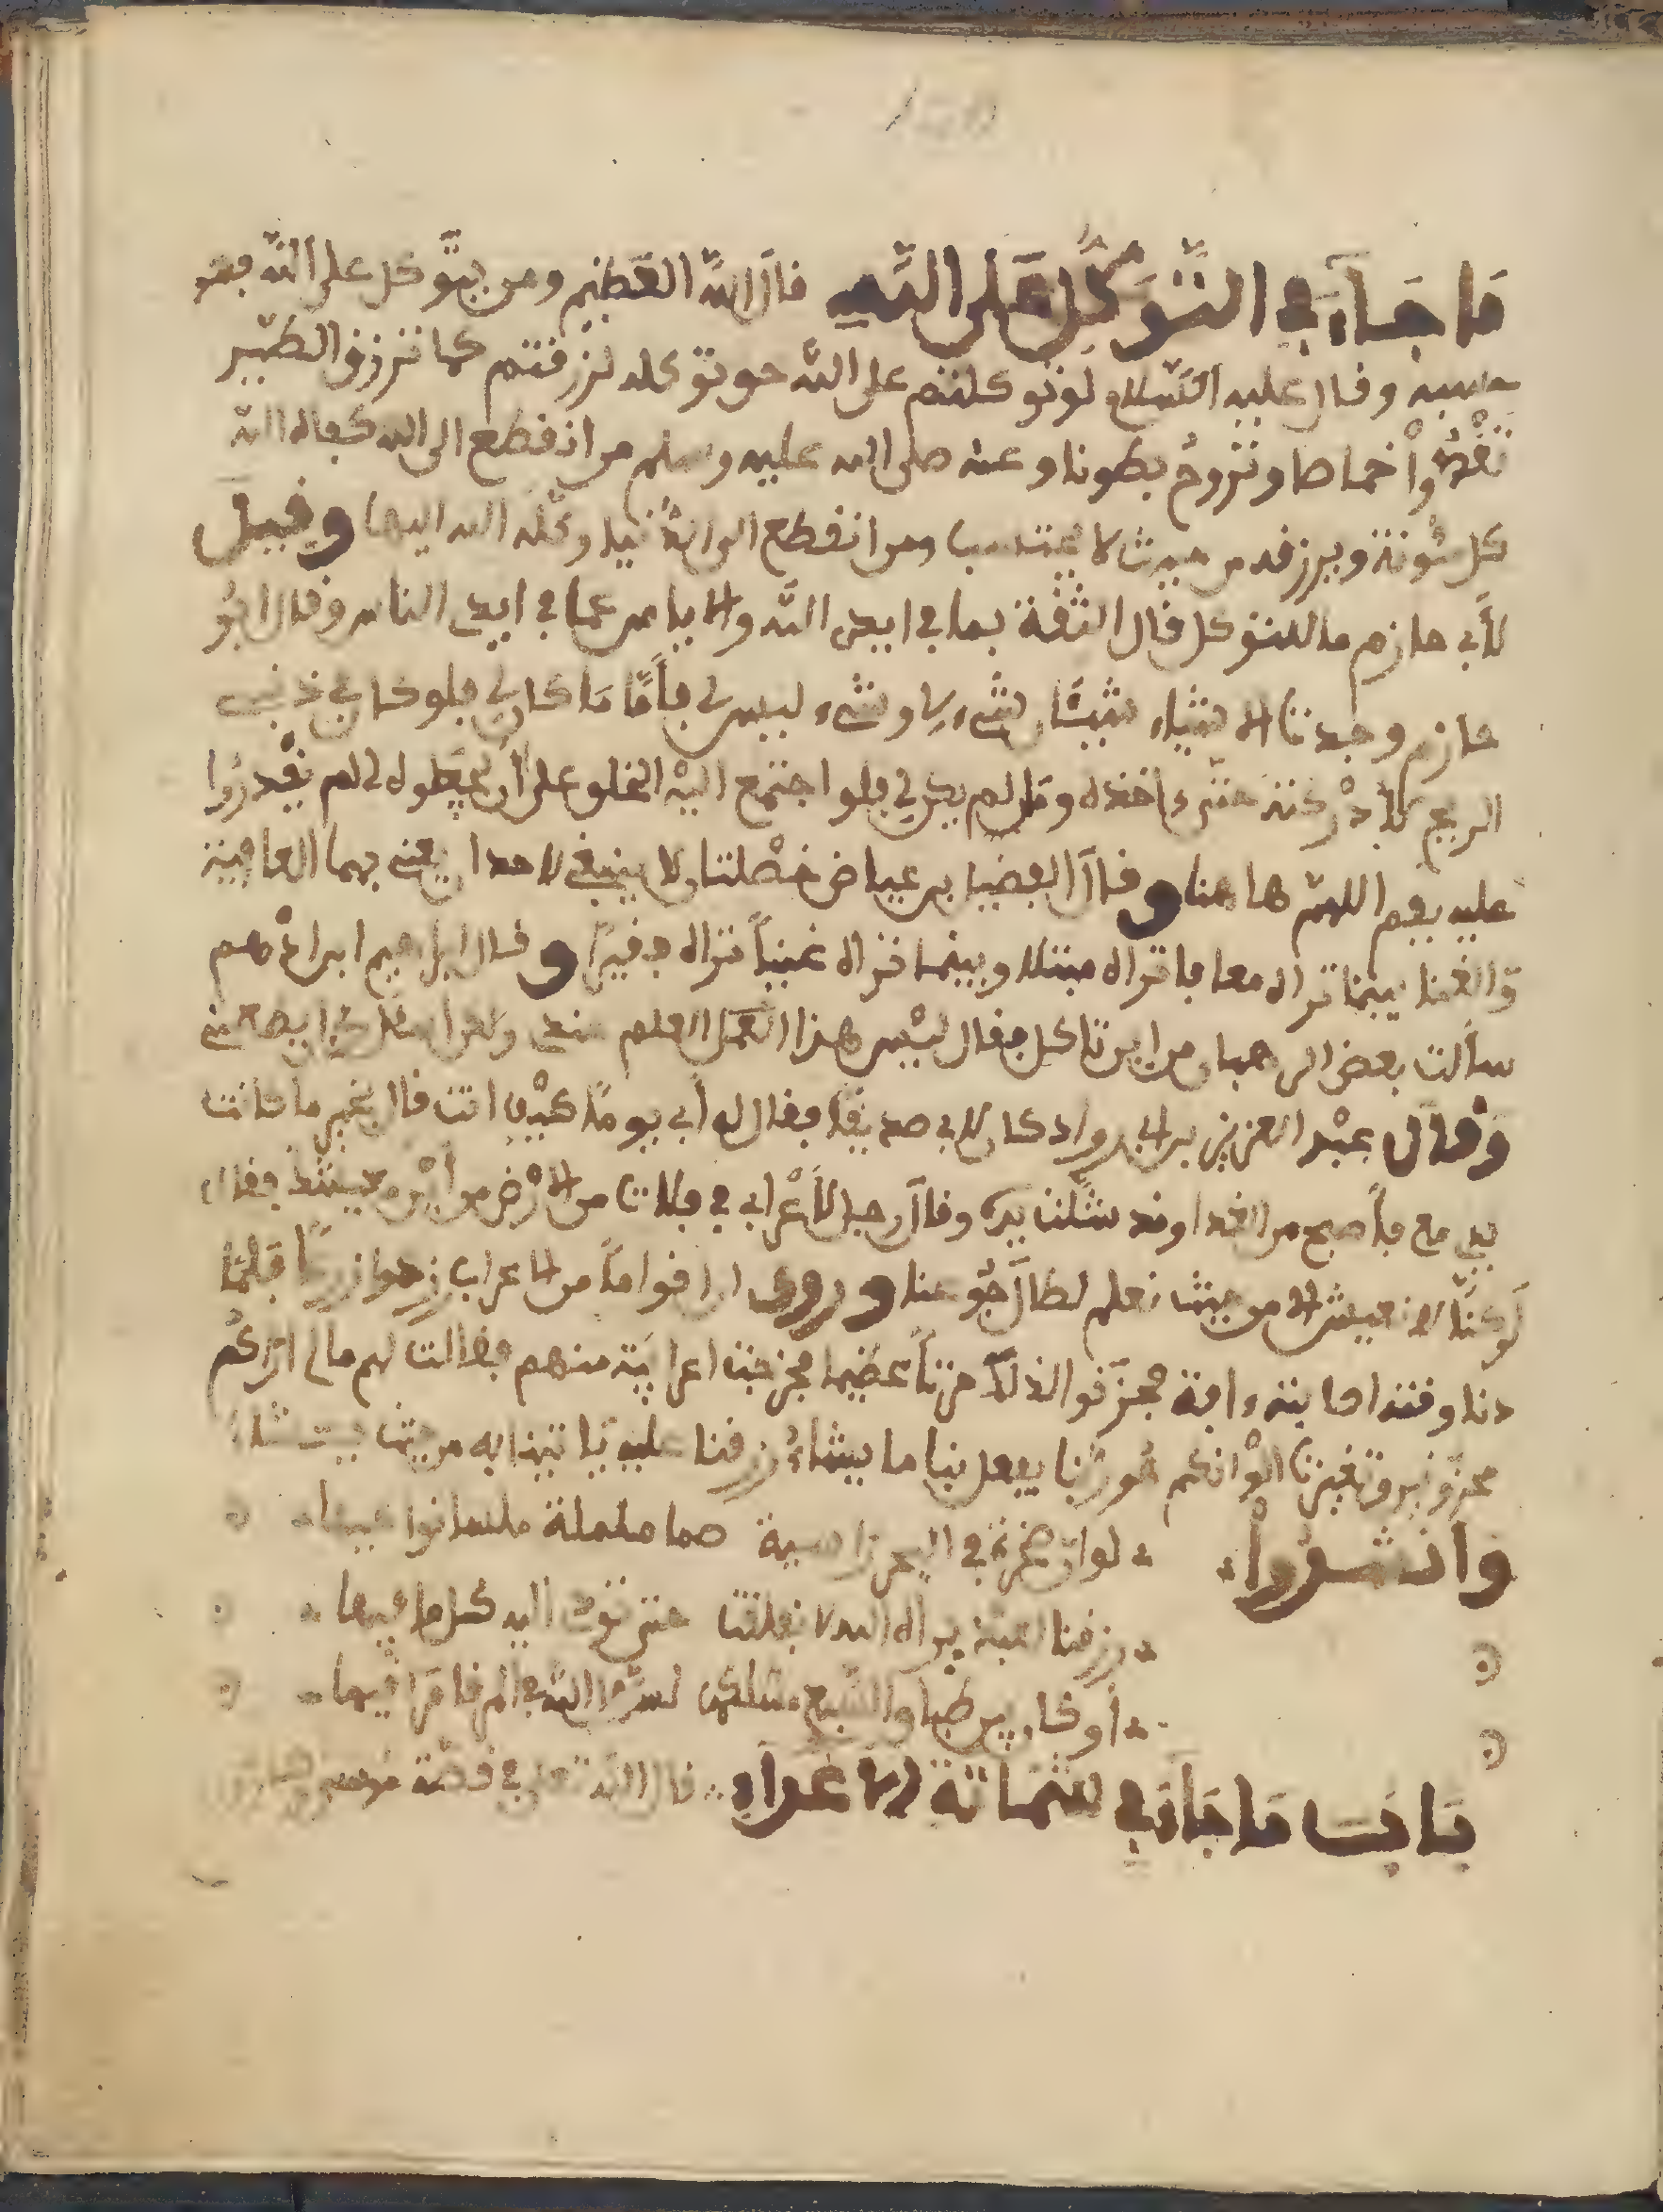 مَا جَاءَ فِي التَّوَكُّلِ عَلَى اللَّهِ قال الله العظيم ومن يتوكل على الله فهو
حسبه وقال عليه السلام لو توكلتم على الله حق توكله لرزقتم كما ترزق الطير
تغدوا خماصا وتروح بطونا وعنه صلى الله عليه وسلم من انقطع الى الله كفاه الله
كل مئونة ويرزقه من حيث لا يحتسب ومن انقطع الى الدنيا وكله الله اليها وقيل
لأبي حازم ما التوكل قال الثقة بما في ايدي الله والاياس عما في ايدي الناس وقال ابو
حازم وجدنا الاشياء شيئان شيء لي وشيء ليس لي فأما ما كان لي فلو كان في ذنب
الريح لأدركته حتى ءاخذه وما لم يكن لي فلو اجتمع اليه الخلق على أن يجعلوه لي لم يقدروا
عليه ففيم اللهم هاهنا وقال الفضيل بن عياض خصلتان لا ينبغي لاحد ان يعنى بهما العافية
والغنا بينما تراه معافا تراه مبتلا وبينما تراه غنيا تراه فقيرا وقال ابراهيم ابن ادهم
سألت بعض الرهبان من اين تاكل فقال ليس هذا العلم عندي ولكن اسئل ربي اين يطعمني
وقال عبد العزيز بن ابي رواد كان لابي صديقا فقال له أبي يوما كيف انت قال بخير ما دامت
يدي مع فأصبح من الغد وقد شلت يده وقال رجل لأعرابي في فلات من الارض من أين معيشتك فقال
لو كنا لا نعيش الا من حيث نعلم لطال جوعنا وروي ان اقواما من الاعراب زرعوا زرعا فلما
دنا وقته اصابته ءافة فحزنوا لذلك حزنا عظيما فخرجت اعرابية منهم فقالت لهم ما لي اراكم
محزونين وتغيرت الوانكم هو ربنا يفعل بنا ما يشاء رزقنا عليه ياتينا به من حيث يشاء
وانشدوا لو ان صخرة في البحر راسية صما ململة ملسا نواحيها
رزقنا لعبد يراه الله لانفلقت حتى تؤدي اليه كل ما فيها
أو كان بين طباق السبع مسلكها لسهل الله في المرقا مراقيها
باب ما جاء في شماتة الاعداء قال الله تعالى في قصة موسى